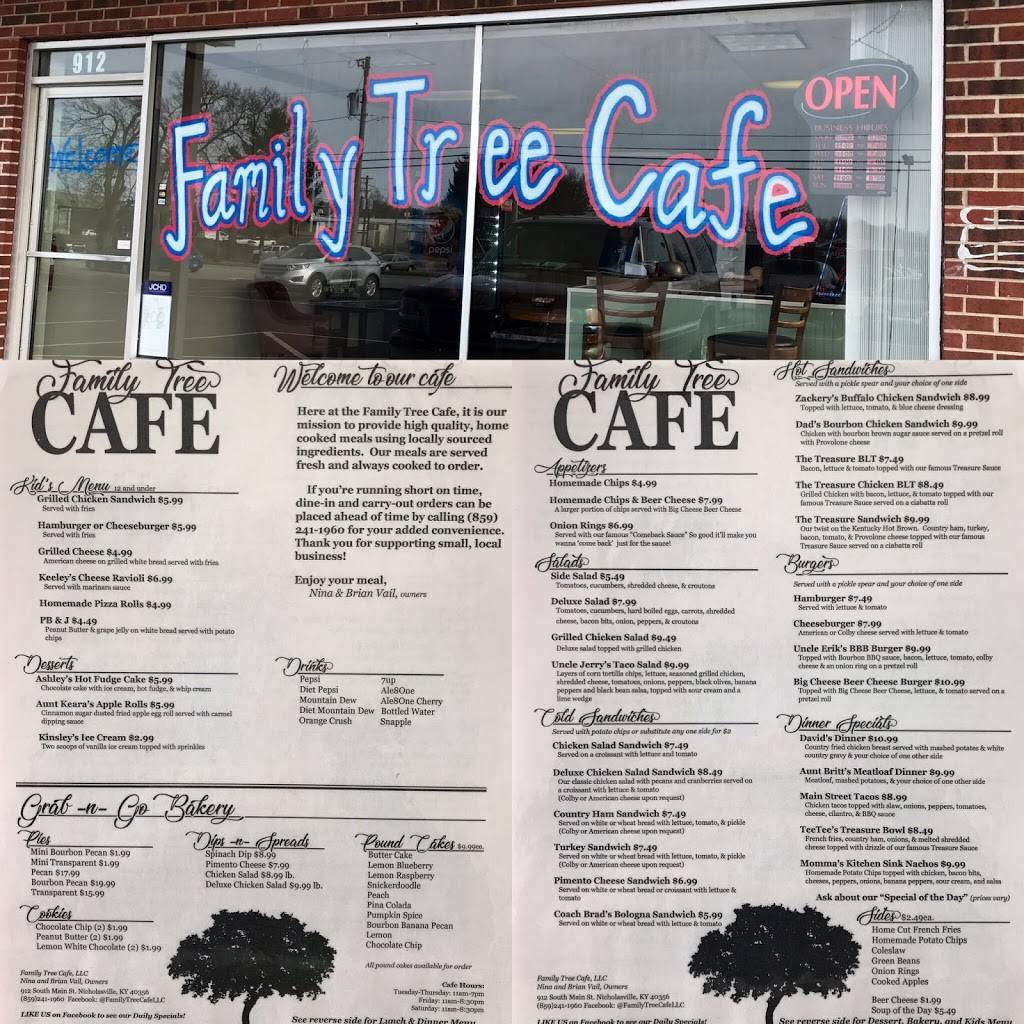 912
Welcome
Family Tree Cafe
OPEN
BUSINESS HOURS
pepsi
JCHD
Family Tree
CAFE
Kid's Menu 12 and under
Grilled Chicken Sandwich $5.99
Served with fries
Hamburger or Cheeseburger $5.99
Served with fries
Grilled Cheese $4.99
American cheese on grilled white bread served with fries
Keeley's Cheese Ravioli $6.99
Served with marinara sauce
Homemade Pizza Rolls $4.99
PB & J $4.49
Peanut Butter & grape jelly on white bread served with potato
chips
Desserts
Ashley's Hot Fudge Cake $5.99
Chocolate cake with ice cream, hot fudge, & whip cream
Aunt Keara's Apple Rolls $5.99
Cinnamon sugar dusted fried apple egg roll served with carmel
dipping sauce
Kinsley's Ice Cream $2.99
Two scoops of vanilla ice cream topped with sprinkles
Welcome to our cafe
Here at the Family Tree Cafe, it is our
mission to provide high quality, home
cooked meals using locally sourced
ingredients. Our meals are served
fresh and always cooked to order.
If you're running short on time,
dine-in and carry-out orders can be
placed ahead of time by calling (859)
241-1960 for your added convenience.
Thank you for supporting small, local
business!
Enjoy your meal,
Nina & Brian Vail, owners
Drinks
Pepsi
Diet Pepsi
Mountain Dew
Diet Mountain Dew
Orange Crush
7up
Ale8One
Ale8One Cherry
Bottled Water
Snapple
Grab -n- Go Bakery
Pies
Mini Bourbon Pecan $1.99
Mini Transparent $1.99
Pecan $17.99
Bourbon Pecan $19.99
Transparent $15.99
Cookies
Chocolate Chip (2) $1.99
Peanut Butter (2) $1.99
Lemon White Chocolate (2) $1.99
Dips -n- Spreads
Spinach Dip $8.99
Pimento Cheese $7.99
Chicken Salad $8.99 lb.
Deluxe Chicken Salad $9.99 lb.
Pound Cakes $9.99ea.
Butter Cake
Lemon Blueberry
Lemon Raspberry
Snickerdoodle
Peach
Pina Colada
Pumpkin Spice
Bourbon Banana Pecan
Lemon
Chocolate Chip
All pound cakes available for order
Family Tree Cafe, LLC
Nina and Brian Vail, Owners
912 South Main St. Nicholasville, KY 40356
(859)241-1960 Facebook: @FamilyTreeCafeLLC
LIKE US on Facebook to see our Daily Specials!
Cafe Hours:
Tuesday-Thursday: 11am-7pm
Friday: 11am-8:30pm
Saturday: 11am-8:30pm
See reverse side for Lunch & Dinner Menu
Family Tree
CAFE
Appetizers
Homemade Chips $4.99
Homemade Chips & Beer Cheese $7.99
A larger portion of chips served with Big Cheese Beer Cheese
Onion Rings $6.99
Served with our famous "Comeback Sauce" So good it'll make you
wanna 'come back' just for the sauce!
Salads
Side Salad $5.49
Tomatoes, cucumbers, shredded cheese, & croutons
Deluxe Salad $7.99
Tomatoes, cucumbers, hard boiled eggs, carrots, shredded
cheese, bacon bits, onion, peppers, & croutons
Grilled Chicken Salad $9.49
Deluxe salad topped with grilled chicken
Uncle Jerry's Taco Salad $9.99
Layers of corn tortilla chips, lettuce, seasoned grilled chicken,
shredded cheese, tomatoes, onions, peppers, black olives, banana
peppers and black bean salsa, topped with sour cream and a
lime wedge
Cold Sandwiches
Served with potato chips or substitute any one side for $2
Chicken Salad Sandwich $7.49
Served on a croissant with lettuce and tomato
Deluxe Chicken Salad Sandwich $8.49
Our classic chicken salad with pecans and cranberries served on
a croissant with lettuce & tomato
(Colby or American cheese upon request)
Country Ham Sandwich $7.49
Served on white or wheat bread with lettuce, tomato, & pickle
(Colby or American cheese upon request)
Turkey Sandwich $7.49
Served on white or wheat bread with lettuce, tomato, & pickle
(Colby or American cheese upon request)
Pimento Cheese Sandwich $6.99
Served on white or wheat bread or croissant with lettuce &
tomato
Coach Brad's Bologna Sandwich $5.99
Served on white or wheat bread with lettuce & tomato
Family Tree Cafe, LLC
Nina and Brian Vail, Owners
912 South Main St. Nicholasville, KY 40356
(859)241-1960 Facebook: @FamilyTreeCafeLLC
LIKE US on Facebook to see our Daily Specials!
Hot Sandwiches
Served with a pickle spear and your choice of one side
Zackery's Buffalo Chicken Sandwich $8.99
Topped with lettuce, tomato, & blue cheese dressing
Dad's Bourbon Chicken Sandwich $9.99
Chicken with bourbon brown sugar sauce served on a pretzel roll
with Provolone cheese
The Treasure BLT $7.49
Bacon, lettuce & tomato topped with our famous Treasure Sauce
The Treasure Chicken BLT $8.49
Grilled Chicken with bacon, lettuce, & tomato topped with our
famous Treasure Sauce served on a ciabatta roll
The Treasure Sandwich $9.99
Our twist on the Kentucky Hot Brown. Country ham, turkey,
bacon, tomato, & Provolone cheese topped with our famous
Treasure Sauce served on a ciabatta roll
Burgers
Served with a pickle spear and your choice of one side
Hamburger $7.49
Served with lettuce & tomato
Cheeseburger $7.99
American or Colby cheese served with lettuce & tomato
Uncle Erik's BBB Burger $9.99
Topped with Bourbon BBQ sauce, bacon, lettuce, tomato, colby
cheese & an onion ring on a pretzel roll
Big Cheese Beer Cheese Burger $10.99
Topped with Big Cheese Beer Cheese, lettuce, & tomato served on a
pretzel roll
Dinner Specials
David's Dinner $10.99
Country fried chicken breast served with mashed potatoes & white
country gravy & your choice of one other side
Aunt Britt's Meatloaf Dinner $9.99
Meatloaf, mashed potatoes, & your choice of one other side
Main Street Tacos $8.99
Chicken tacos topped with slaw, onions, peppers, tomatoes,
cheese, cilantro, & BBQ sauce
TeeTee's Treasure Bowl $8.49
French fries, country ham, onions, & melted shredded
cheese topped with drizzle of our famous Treasure Sauce
Momma's Kitchen Sink Nachos $9.99
Homemade Potato Chips topped with chicken, bacon bits,
cheeses, peppers, onions, banana peppers, sour cream, and salsa
Ask about our "Special of the Day" (prices vary)
Sides $2.49ea.
Home Cut French Fries
Homemade Potato Chips
Coleslaw
Green Beans
Onion Rings
Cooked Apples
Beer Cheese $1.99
Soup of the Day $5.49
See reverse side for Dessert, Bakery, and Kids Menu